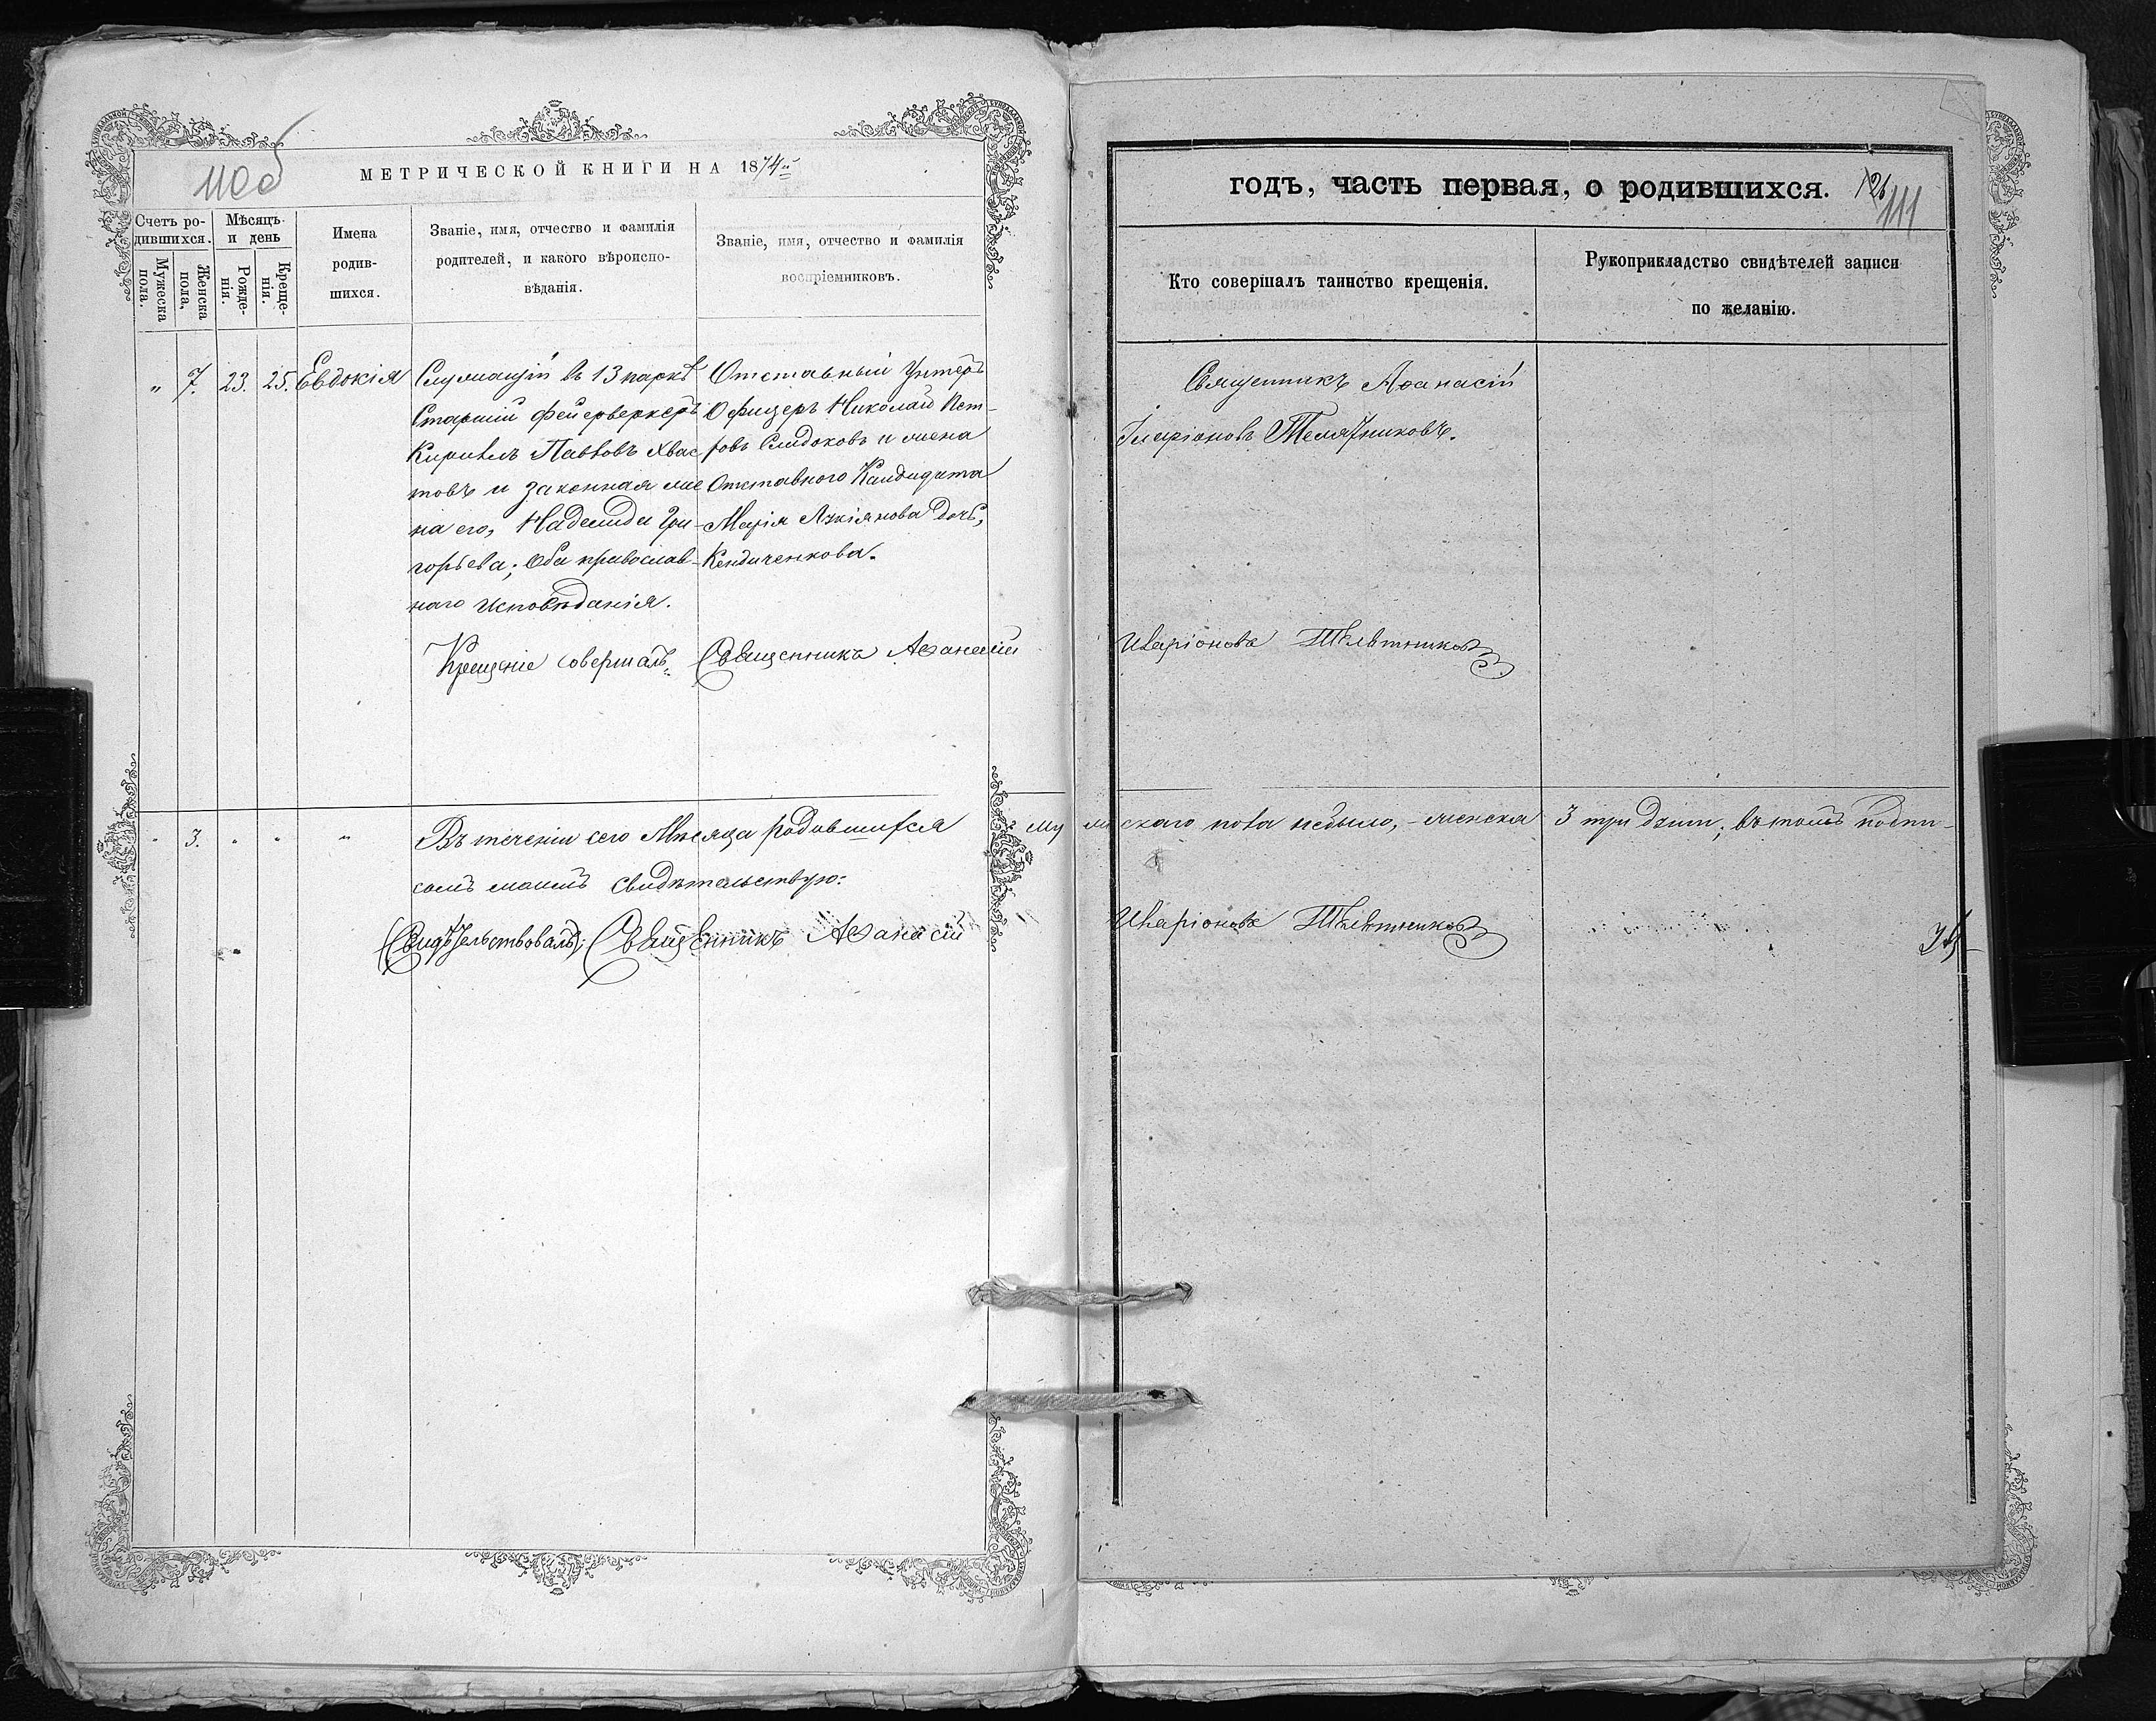 110об
МЕТРИЧЕСКОЙ КНИГИ НА 1874й
Счетъ ро-
дившихся.
Мужеска
пола.
Женска
пола,
Мѣсяцъ
и день
Рожде-
нія.
Креще-
нія.
Имена
родив-
шихся.
Званіе, имя, отчество и фамилія
родителей, и какого вѣроиспо-
вѣданія.
Званіе, имя, отчество и фамилія
воспріемниковъ.
" 7. 23. 25. Евдокія
Служащій въ 13 паркѣ
Старшій фейерверкеръ
Кирилъ Павловъ Хвас
товъ и законная же
на его, Надежда Гри-
горьева; Оба православ-
наго исповѣданія.
Отставный Унтеръ
Офицеръ Николай Пет-
ровъ и жена
Отставного Кандидата
Марія дочь,
Крещеніе совершалъ: Священникъ Аѳанасій
" 3. " " "
Въ теченіи сего Мѣсяца родившихся
самъ свидѣтельствую:
Свидѣтельствовалъ; Священникъ Аѳанасій
годъ, часть первая, о родившихся. 126
111
Кто совершалъ таинство крещенія.
Рукоприкладство свидѣтелей записи
по желанію.
Священникъ Аѳанасій
Иларіоновъ Телятниковъ.
Иларіоновъ Телятниковъ
му жескаго пола небыло, - женска 3 три въ томъ подпи-
Иларіоновъ Телятниковъ